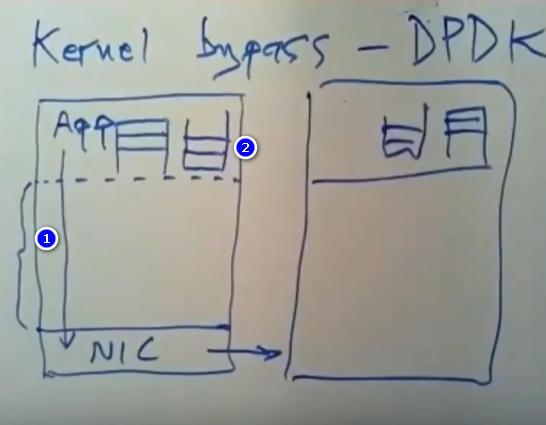 Kernel bypass - DPDK
App
2
1
NIC